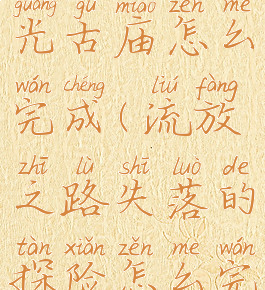 guāng gǔ miào zěn me
光古庙怎么
wán chéng liú fàng
完成(流放
zhī lù shī luò de
之路失落的
tàn xiǎn zěn me wán
探险怎么完